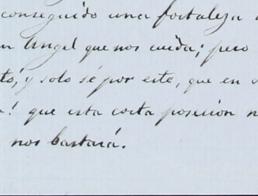 conseguido una fortaleza
un Angel que nos cuida; pero
y solo sé por este, que en
! que esta corta posicion
nos bastará.